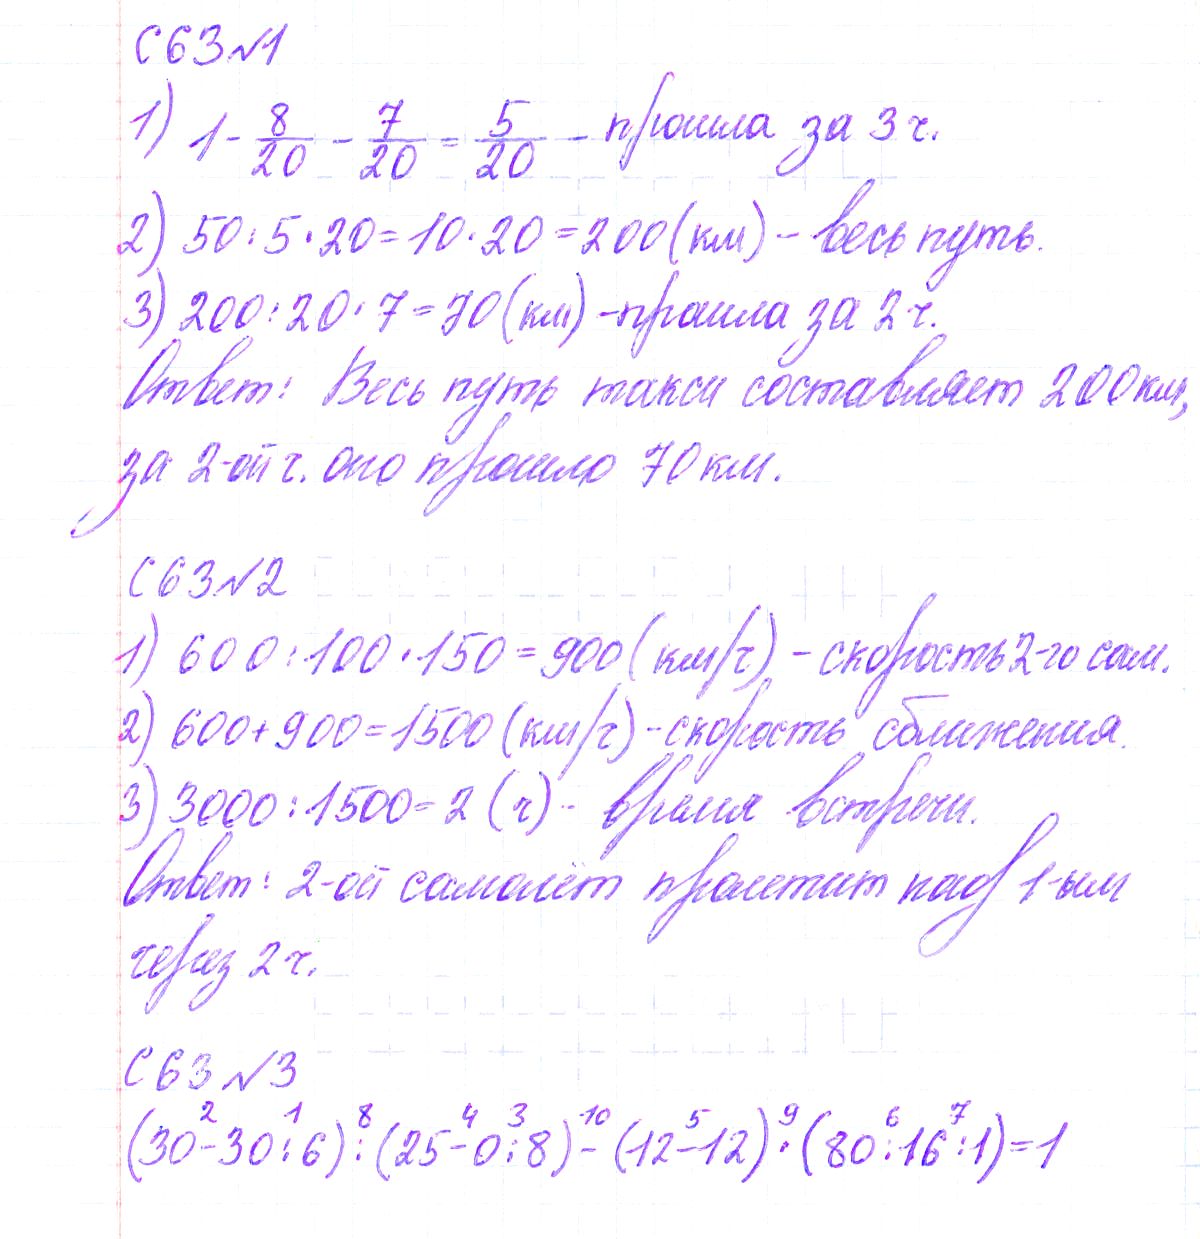 С63№1
1) 1 - 8/20 - 7/20 = 5/20 - прошла за 3 ч.
2) 50:5·20=10·20=200(км) - весь путь.
3) 200:20·7=70(км) - прошла за 2 ч.
Ответ: Весь путь такси составляет 200км,
за 2-ой ч. оно прошло 70 км.
С63№2
1) 600:100·150=900(км/ч) - скорость 2-го сам.
2) 600+900=1500(км/ч) - скорость сближения.
3) 3000:1500=2 (ч) - время встречи.
Ответ: 2-ой самолёт пролетит над 1-ым
через 2 ч.
С63№3
2 1 8 4 3 10 5 9 6 7
(30-30:6):(25-0:8)-(12-12)·(80:16:1)=1